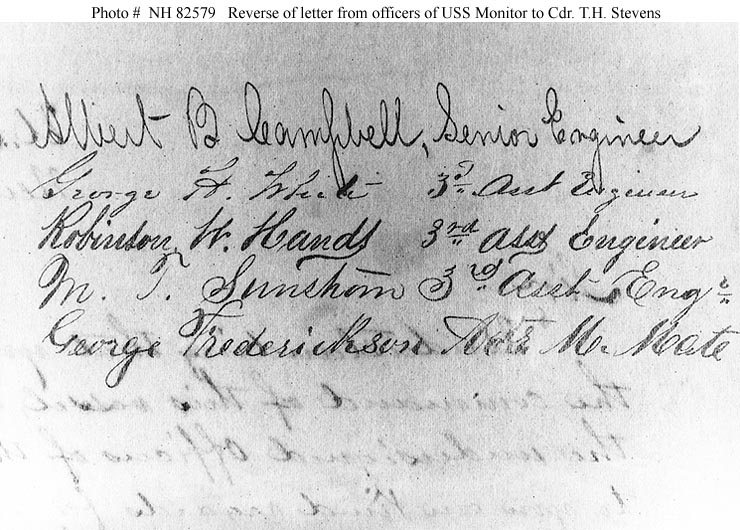 Photo # NH 82579 Reverse of letter from officers of USS Monitor to Cdr. T.H. Stevens
Albert B Campbell, Senior Engineer
George H. White 3rd Asst Engineer
Robinson W. Hands 3rd asst Engineer
M. T. Sunstrom 3rd Asst Engr
George Frederickson Act'g M. Mate